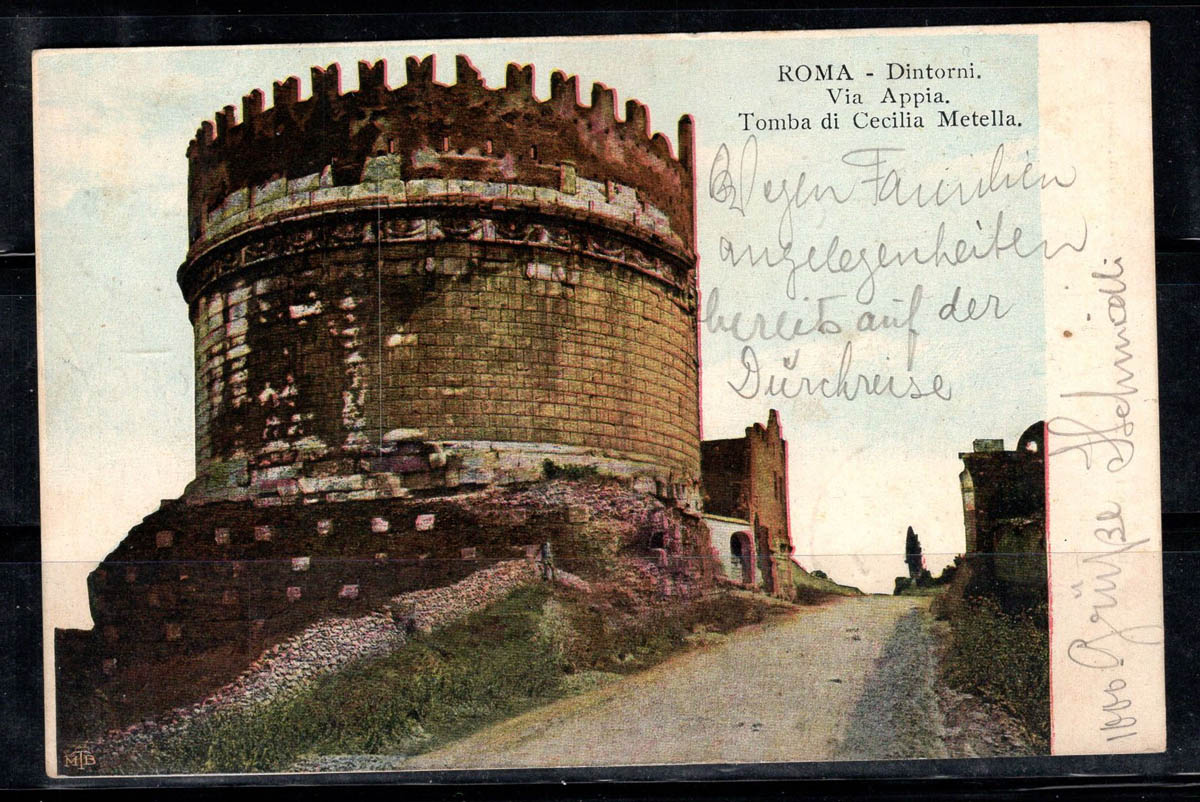 ROMA - Dintorni.
Via Appia.
Tomba di Cecilia Metella.
Wegen Familien
angelegenheiten
bereits auf der
Dürchreise
1000 Grüße
MTB